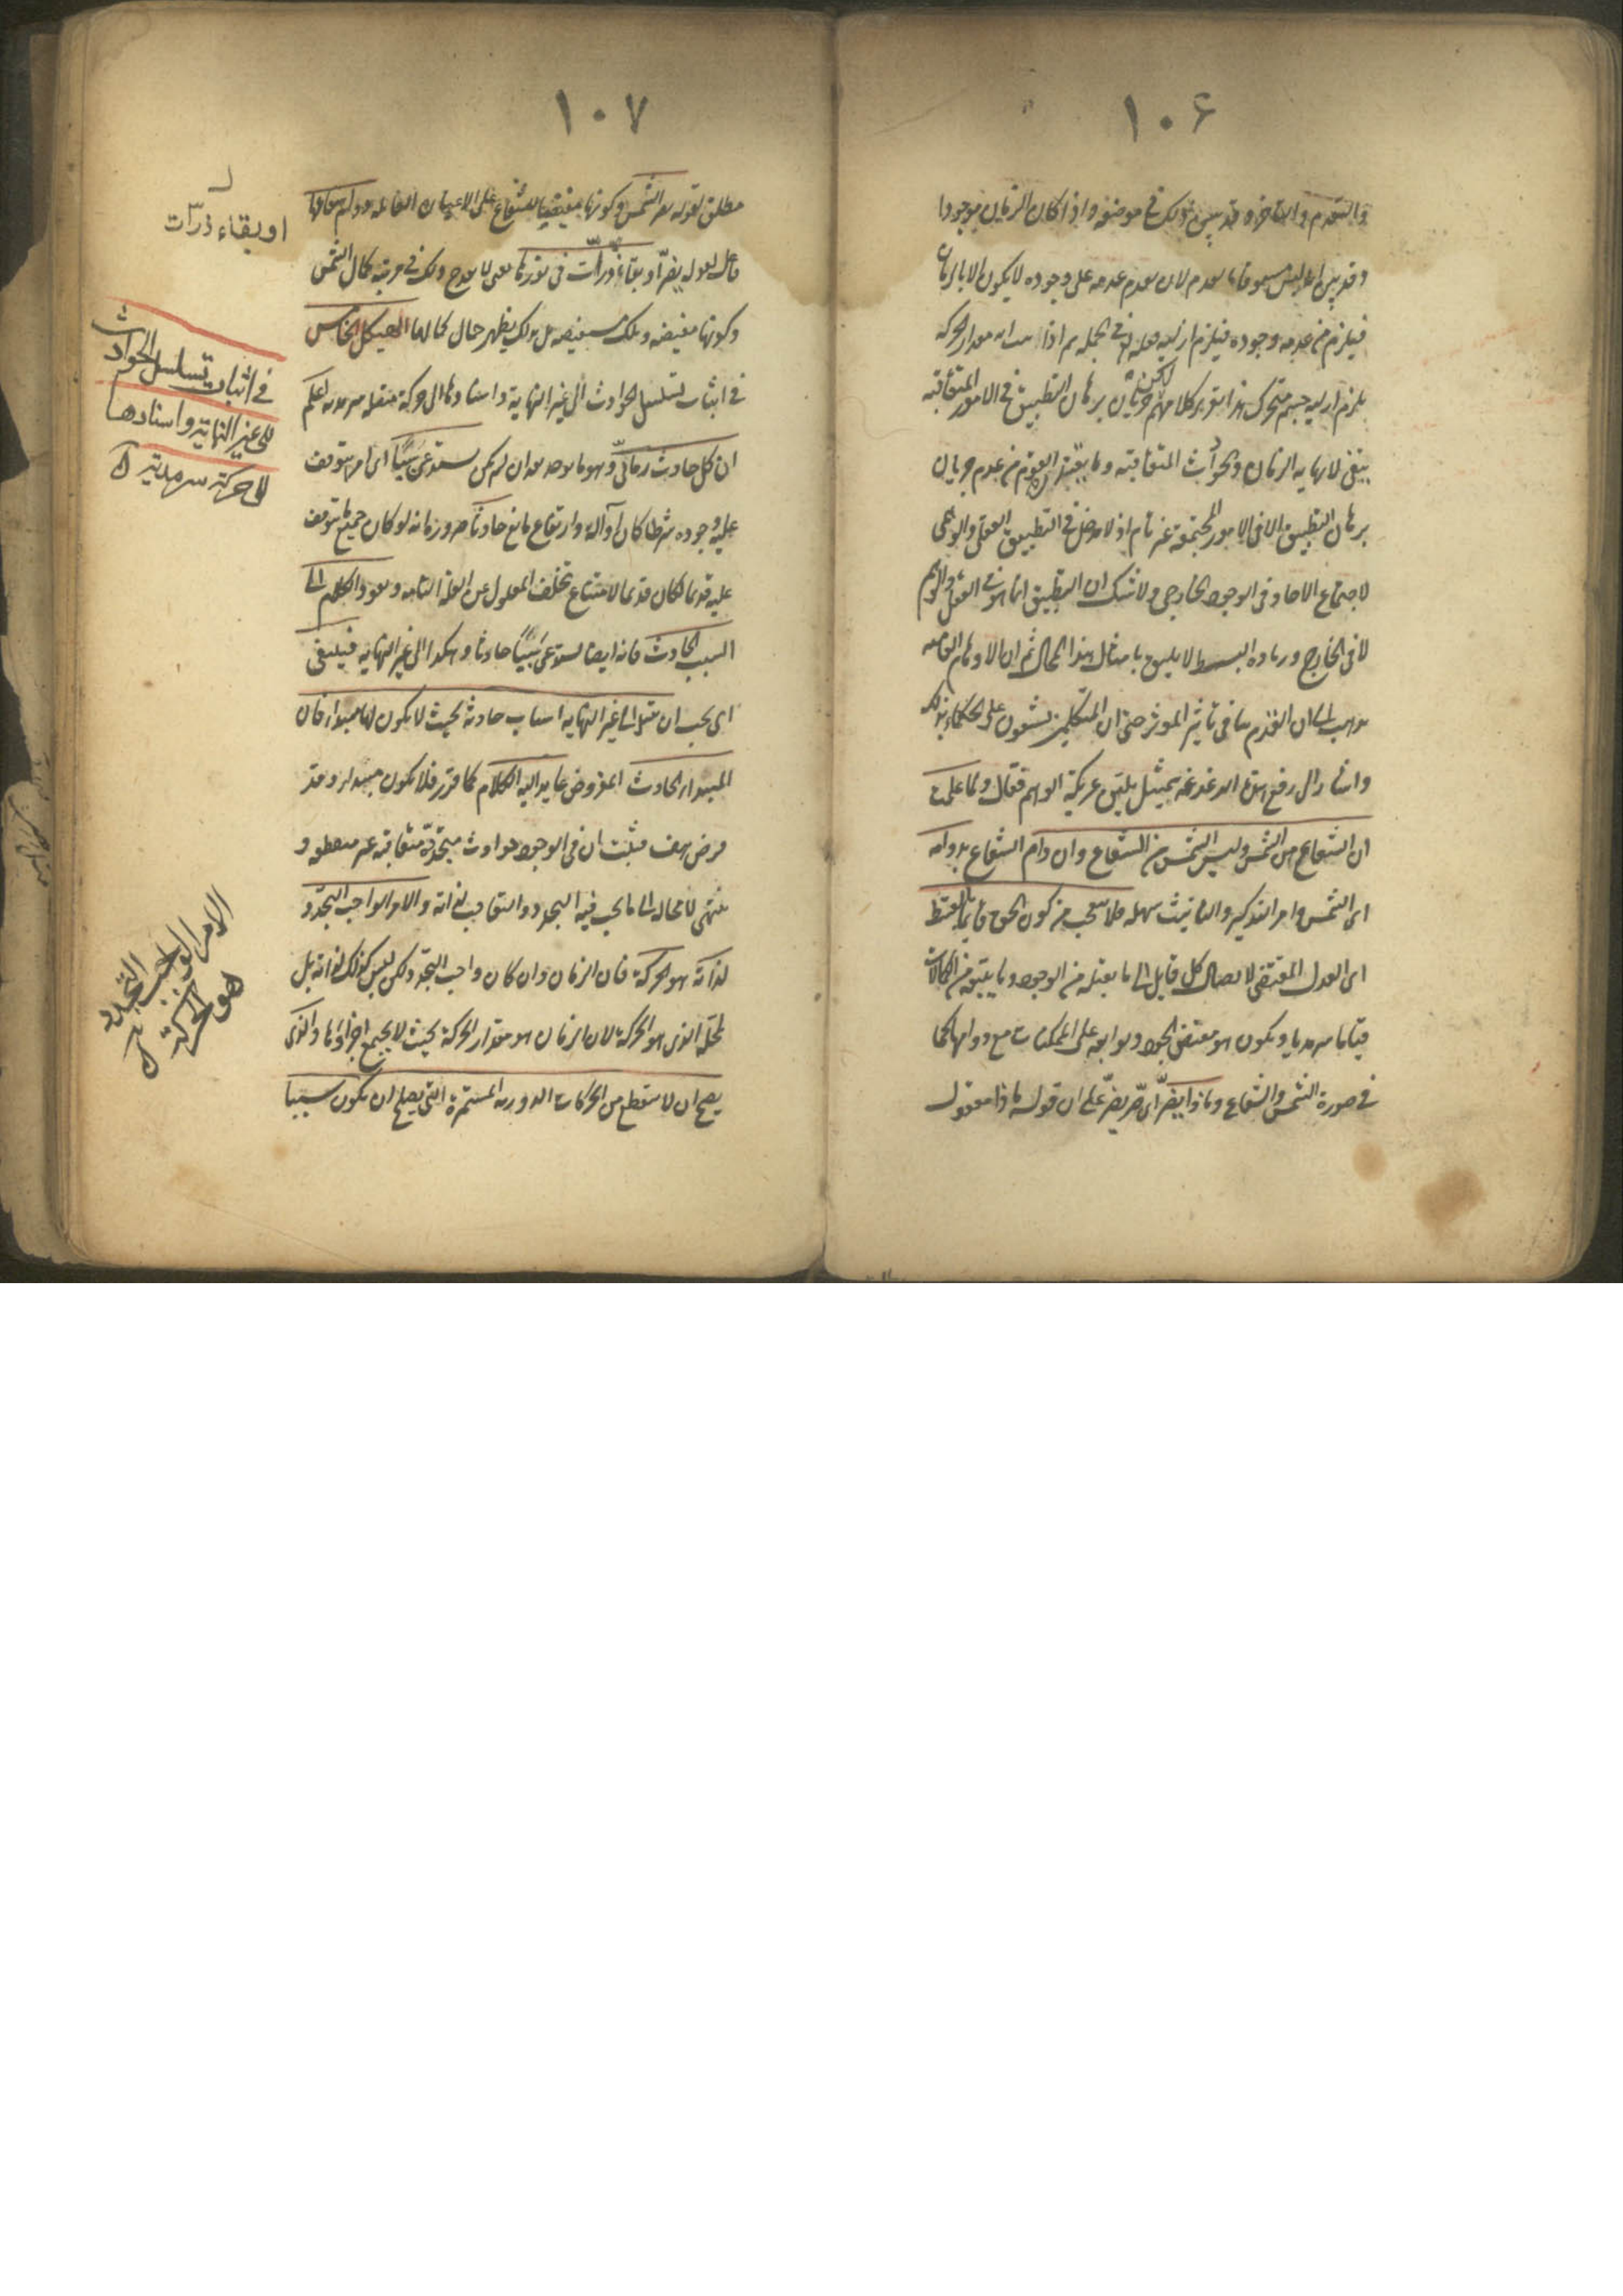 ١٠۶
والتقدم والتاخر وقد بين ذلك في موضعه واذا كان الزمان موجودا
وقد بين انه ليس مسبوقا بعدم لان تقدم عدمه على وجوده لا يكون الا بالزمان
فيلزم من عدمه وجوده فيلزم ازليه في الجملة ثم اذا ثبت انه مقدار الحركة
يلزم ازلية جسم متحرك هذا تقرير كلامهم لكن جريان برهان التطبيق في الامور المتعاقبة
ينفي لا نهاية الزمان والحوادث المتعاقبة وما يعتذر القوم من عدم جريان
برهان التطبيق الا في الامور المجتمعة غير تام اذ لا مدخل في التطبيق العقلي والوهمي
لاجتماع الاحاد في الوجود الخارجي ولا شك ان التطبيق انما هو في العقل والوهم
لا في الخارج وزيادة البسط لا يليق بامثال هذا المجال ثم ان الاوهام العامية
يذهب الى ان القدم ينافي تاثير الموثر حتى ان المتكلمين يشنعون على الحكماء بذلك
واشار الى رفع هذه الدغدغة بتمثيل يلين عريكة الوهم فقال ولما علمت
ان الشعاع من الشمس وليس الشمس من الشعاع وان دام الشعاع بدوامه
اى الشمس وامر التذكير والتانيث سهل فلا تتعجب من كون الحق قايما بالقسط
اى العدل المقتضى لايصال كل قابل الى ما يقبله من الوجود وما يتبعه من الكمالات
قياما سرمديا ويكون هو مقتضى الجود وتوابعه على الممكنات مع دوامها كما
في صورة الشمس والشعاع وماذا يضر اى ضر يضر على ان قوله ماذا مفعول
١٠٧
مطلق لقوله يضر الشمس وكونها مفيضة للشعاع على الاعيان القابلة ودوام شعاعها
فاعل لقوله يضر او بقاء ذرات في نورها يعني لا يقدح ذلك في مرتبة كمال الشمس
وكونها مفيضة وتلك مستفيضة بل بذلك يظهر حال كمالها الهيكل الخامس
في اثبات تسلسل الحوادث الى غير النهاية واسنادها الى حركة متصلة سرمدية اعلم
ان كل حادث زماني وهو ما يوجد بعد ان لم يكن يستدعى سببا اى امرا يتوقف
عليه وجوده شرطا كان او آلة او ارتفاع مانع حادثا ضرورة انه لو كان جميع ما يتوقف
عليه قديما لكان قديما لامتناع تخلف المعلول عن العلة التامة ويعود الكلام الى
السبب الحادث فانه ايضا يستدعى سببا حادثا وهكذا الى غير النهاية فينبغي
اى يجب ان يتسلسل الى غير النهاية اسباب حادثة بحيث لا يكون لها مبدا فان
المبدا الحادث المفروض عايد اليه الكلام كما قرر فلا يكون مبدا وقد
فرض هف فثبت ان في الوجود حوادث متجددة متعاقبة غير منقطعة و
ينتهى لا محالة الى ما يجب فيه التجدد والتعاقب لذاته والامر الواجب التجدد
لذاته هو الحركة فان الزمان وان كان واجب التجدد ولكن ليس كذلك لذاته بل
لمحله الذى هو الحركة لان الزمان هو مقدار الحركة بحيث لا يجتمع اجزاؤها والذى
يصح ان لا ينقطع من الحركات الدورية المستمرة التي يصلح ان يكون سببا
او بقاء ذرات
في اثبات تسلسل الحوادث
الى غير النهاية واسنادها
الى حركة سرمدية
الامر الواجب التجدد
هو الحركة